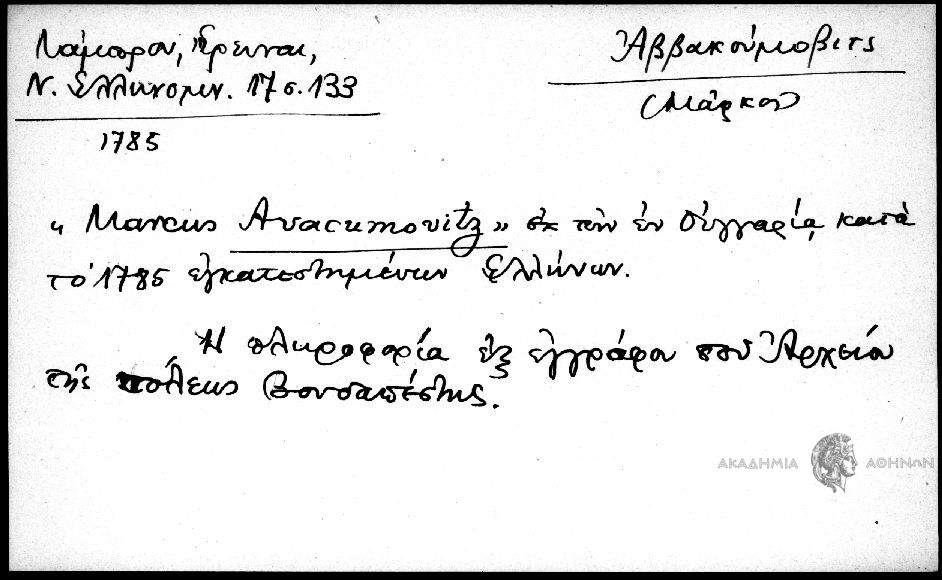 Λάμπρου, Ἔρευναι,
Ν. Ἑλληνομν. 17 σ. 133
1785
Ἀββακούμοβιτς
(Μάρκου)
« Marcus Avacumovitz » ἐκ τῶν ἐν Οὑγγαρίᾳ κατὰ
τὸ 1785 ἐγκατεστημένων Ἑλλήνων.
Ἡ πληροφορία ἐξ ἐγγράφου τοῦ Ἀρχείου
τῆς πόλεως Βουδαπέστης.
ΑΚΑΔΗΜΙΑ ΑΘΗΝΩΝ